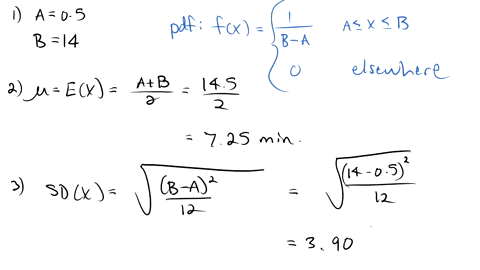 1) A = 0.5
B = 14
pdf: f(x) = { 1/(B-A) A ≤ x ≤ B
0 elsewhere
2) μ = E(X) = (A+B)/2 = 14.5/2
= 7.25 min.
3) SD(X) = √((B-A)²/12) = √((14-0.5)²/12)
= 3.90